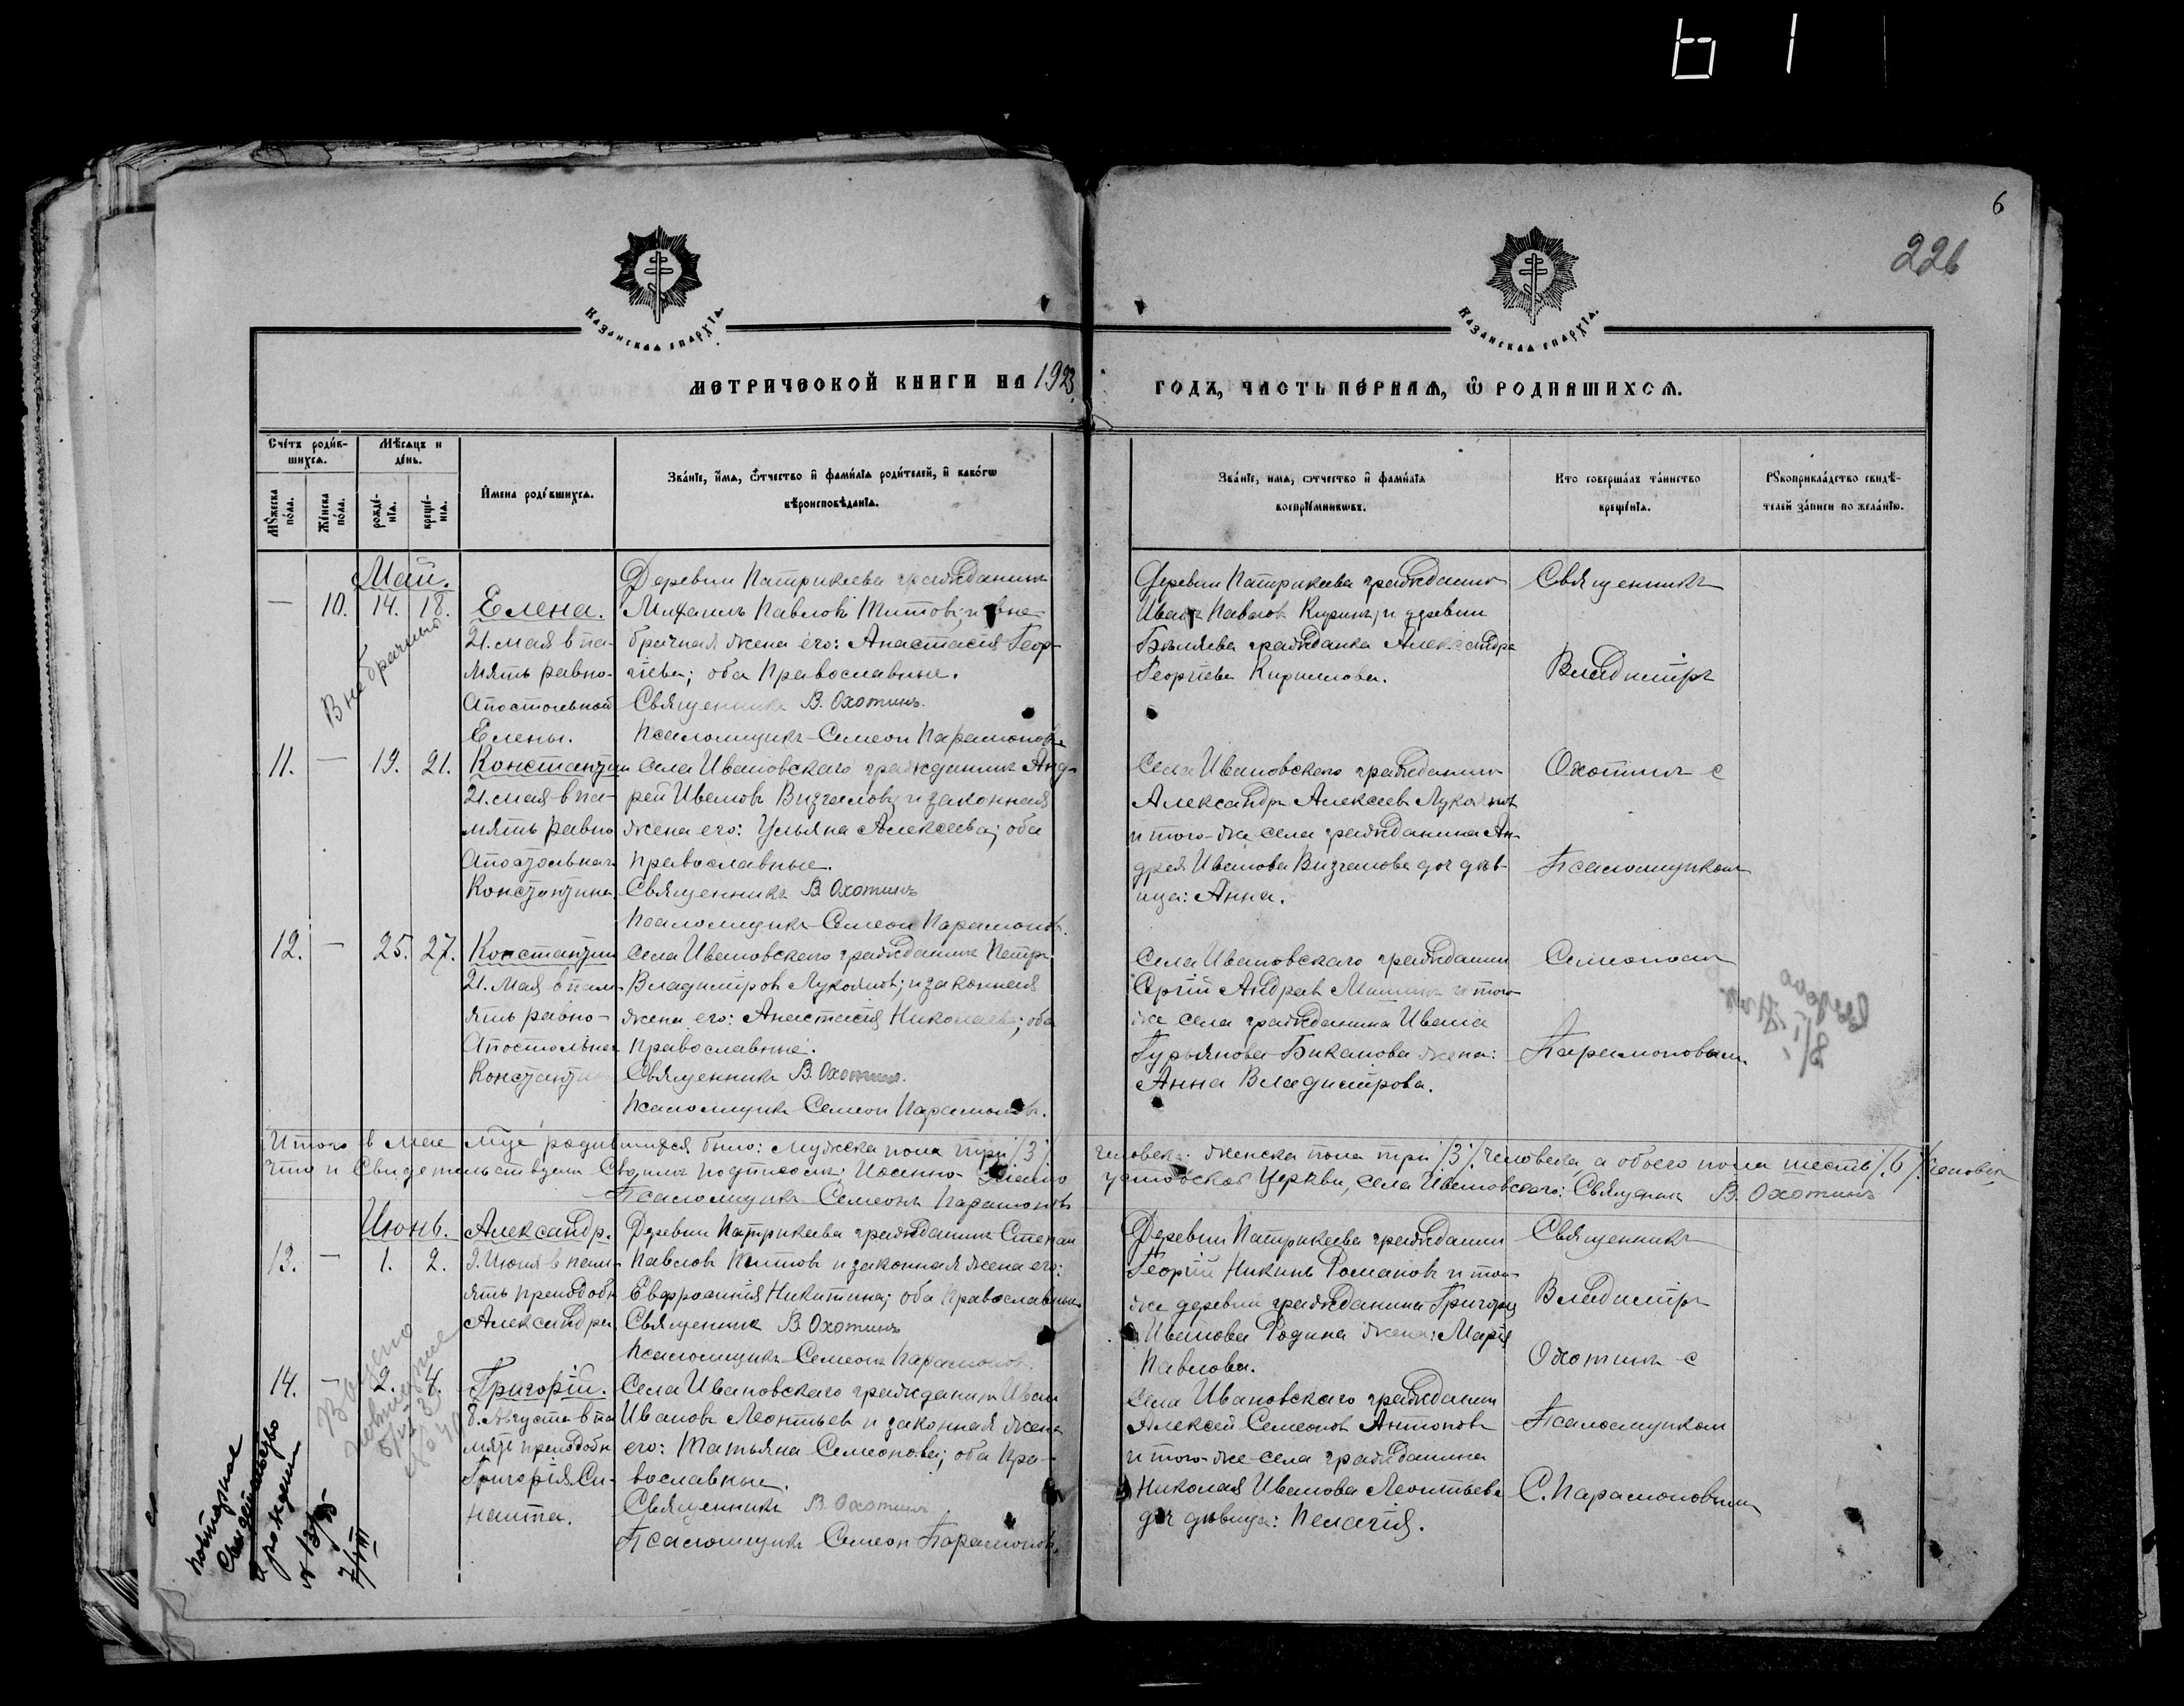 6
226
Казанская епархїа.
Казанская епархїа.
МЕТРИЧЕСКОЙ КНИГИ НА 1923
ГОДЪ, ЧАСТЬ ПЕРВАЯ, Ѡ РОДИВШИХСЯ.
Счетъ родившихся.
Мѣсяцъ и день.
Мужеска пола.
Женска пола.
рожденїа.
крещенїа.
Имена родившихся.
Званїе, имя, ѿчество и фамилїа родителей, и какогѡ
вѣроисповѣданїа.
Званїе, имя, ѿчество и фамилїа
воспрїемниковъ.
Кто совершалъ таинство
крещенїа.
Рукоприкладство свидѣ-
телей записи по желанїю.
Май.
— 10. 14. 18.
Внебрачный
Елена.
21. мая в па-
мять равно-
апостольной
Елены.
Деревни Патрикеева гражданин
Михаилъ Павловъ Титовъ; и вне-
брачная жена его: Анастасія Геор-
гіева; оба Православные.
Священникъ В. Охотинъ.
Псаломщикъ Семеон Парамоновъ
Деревни Патрикеева гражданин
Иванъ Павлов Кирилл и деревни
Бѣляева гражданка Александра
Георгіева Кириллова.
Священникъ
Владиміръ
11. — 19. 21.
Константин
21. мая в па-
мять равно
апостольнаго
Константина
Села Ивановскаго гражданин Анд-
рей Ивановъ Визгалов; и законная
жена его: Ульяна Алексѣева; оба
православные.
Священникъ В. Охотинъ
Псаломщикъ Семеон Парамонов.
Села Ивановскаго гражданин
Александръ Алексѣев Лукоянов
и того-же села гражданина Ан-
дрея Иванова Визгалова доч дѣв-
ица: Анна.
Охотин с
Псаломщиком
12. — 25. 27.
Константин
21. Мая в пам-
ять равно-
Апостольнаго
Села Ивановскаго гражданин Петръ
Владиміров Лукоянов; и законная
жена его: Анастасія Николаева; оба
православные.
Священникъ В. Охотин.
Псаломщикъ Семеон Парамонов.
Села Ивановскаго гражданин
Сергій Андреев и того
же села гражданина Ивана
Гурьянова Биканова жена:
Анна Владимірова.
Семеоном
Парамоновым.
Итого в Мае мце родившихся было: мужеска пола три /3/
человека: женска пола три /3/ человека, а обоего пола шесть /6/ человек,
что и Свидетельствуем Своим подписом: Иоанно-Злато
устовской Церкви, села Ивановскаго: Священник В. Охотинъ
Псаломщикъ Семеонъ Парамоновъ
Июнь.
13. — 1. 2.
Александр.
2. Июня в пам-
ять преподобн
Александра
Деревни Патрикеева гражданин Степан
Павловъ Титов и законная жена его:
Евфросинія Никитина; оба Православные
Священник В. Охотинъ
Псаломщикъ Семеонъ Парамонов.
Деревни Патрикеева гражданин
Георгій Романовъ и той
же деревни гражданина Григорія
Иванова Родина жена: Марія
Павлова.
Священникъ
Владиміръ
Охотин с
14. — 2. 4.
Григорій.
8. Августа в па
мять преподобн
Григорія Си-
наита.
Села Ивановскаго гражданин Иван
Ивановъ Леонтьев и законная жена
его: Татьяна Семеонова; оба Пра-
вославные.
Священникъ В. Охотин
Псаломщикъ Семеон Парамонов.
Села Ивановскаго гражданин
Алексѣй Семеонов Антонов
и того-же села гражданина
Николая Иванова Леонтьева
доч дѣвица: Пелагія.
Псаломщиком
С. Парамоновым
Выдано
повторное
повторное
свидетельство
о рождении